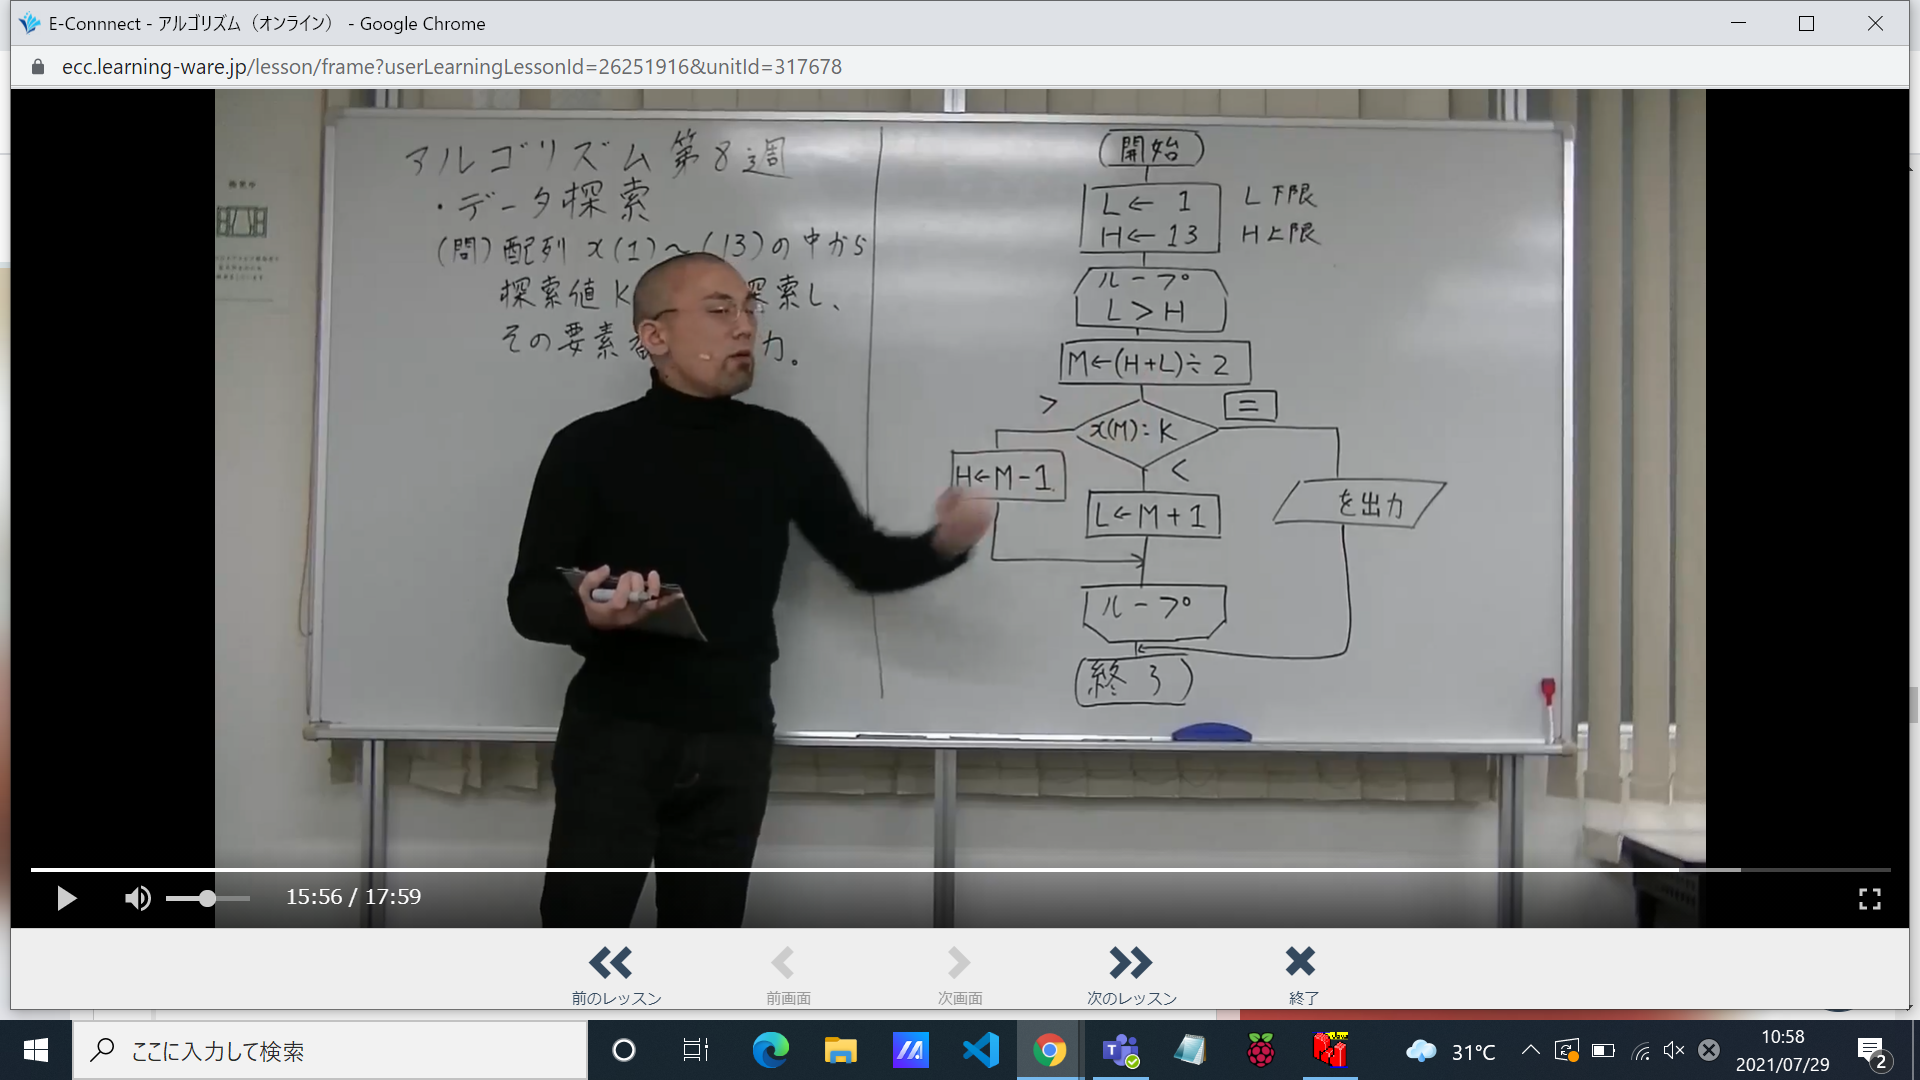 E-Connnect - アルゴリズム（オンライン） - Google Chrome
ecc.learning-ware.jp/lesson/frame?userLearningLessonId=26251916&unitId=317678
アルゴリズム 第8週
・データ探索
(問) 配列 x(1)～(13)の中から
探索値K 探索し、
その要素 力。
開始
L ← 1
H ← 13
L 下限
H 上限
ループ
L > H
M←(H+L)÷2
>
x(M):K
=
<
H←M-1
L←M+1
を出力
ループ
終了
15:56 / 17:59
前のレッスン
前画面
次画面
次のレッスン
終了
ここに入力して検索
31°C
10:58
2021/07/29
2